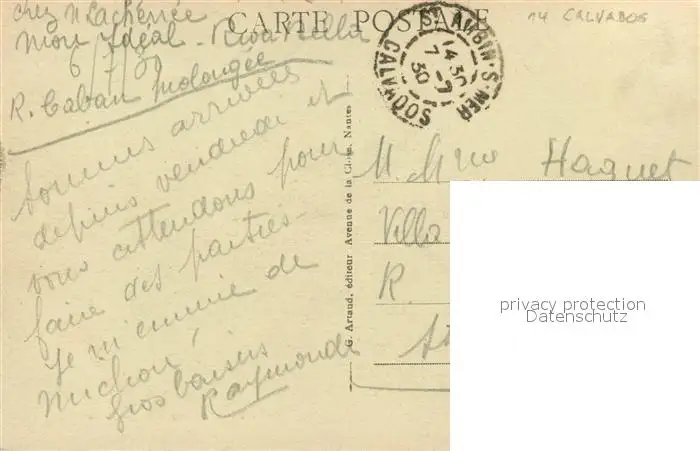 chez M Lachenée
CARTE POSTALE
14 CALVADOS
mon Idéal - Riva Bella
6/7/30
R. Caban prolongée
ST AUBIN-S-MER
14 30
7 -7
30
CALVADOS
sommes arrivées
depuis vendredi et
vous attendons pour
faire des parties -
je m'ennuie de
michou !
gros baisers
Raymonde
G. Artaud, éditeur Avenue de la Close, Nantes
M. Mme Haquet
Villa
R.
privacy protection
Datenschutz